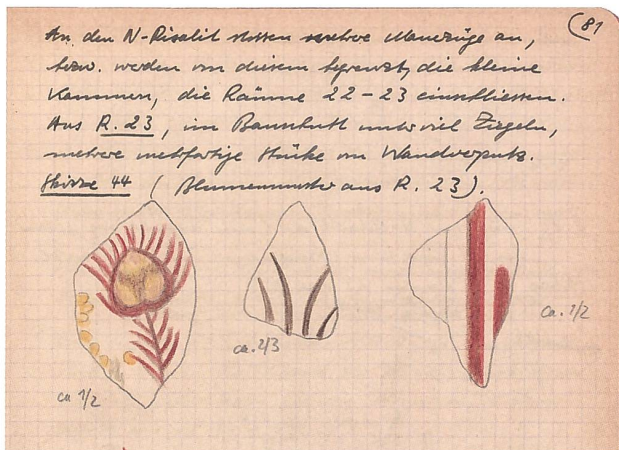 81
An den N-Risalit stossen mehrere Mauerzüge an,
bezw. werden von diesem begrenzt, die kleine
Kammern, die Räume 22-23 einschliessen.
Aus R. 23, im Bauschutt unter viel Ziegeln,
mehrere mehrfarbige Stücke von Wandverputz.
Skizze 44 (Blumenmuster aus R. 23).
ca. 1/2
ca. 2/3
ca 1/2